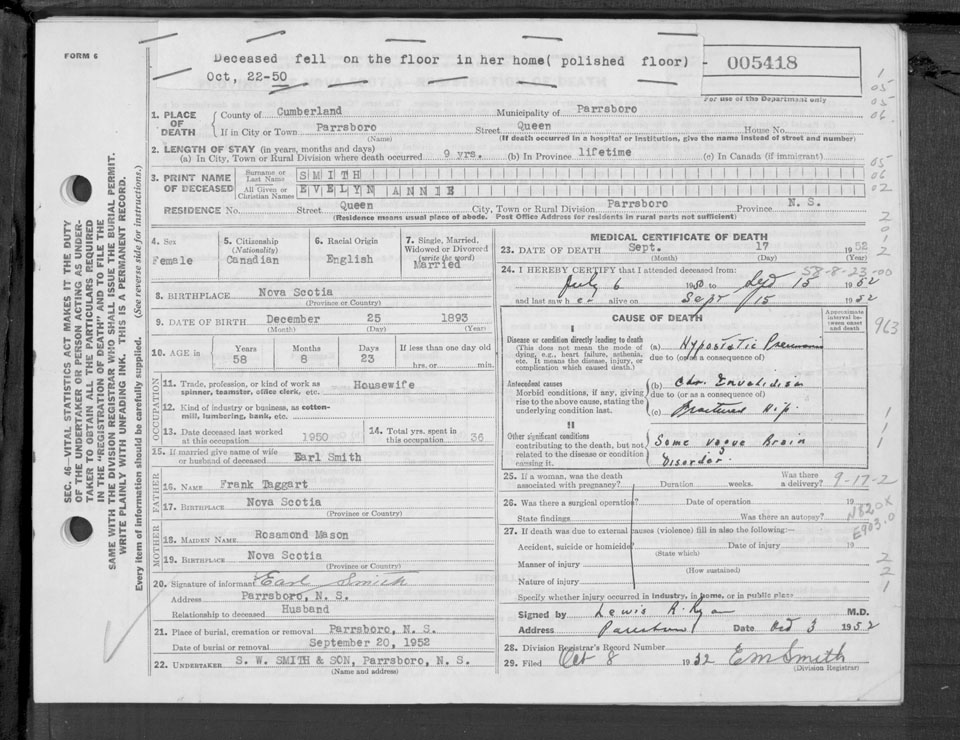 FORM 6
Deceased fell on the floor in her home( polished floor)
Oct, 22-50
005418
For use of the Department only
1. PLACE OF DEATH
County of Cumberland Municipality of Parrsboro
If in City or Town Parrsboro Street Queen House No.
(Name) (If death occurred in a hospital or institution, give the name instead of street and number)
2. LENGTH OF STAY (in years, months and days)
(a) In City, Town or Rural Division where death occurred 9 yrs. (b) In Province lifetime (c) In Canada (if immigrant)
3. PRINT NAME OF DECEASED
Surname or Last Name SMITH
All Given or Christian Names EVELYN ANNIE
RESIDENCE No. Street Queen City, Town or Rural Division Parrsboro Province N. S.
(Residence means usual place of abode. Post Office Address for residents in rural parts not sufficient)
4. Sex Female
5. Citizenship (Nationality) Canadian
6. Racial Origin English
7. Single, Married, Widowed or Divorced (write the word) Married
8. BIRTHPLACE Nova Scotia
(Province or Country)
9. DATE OF BIRTH December 25 1893
(Month) (Day) (Year)
10. AGE in Years 58 Months 8 Days 23 If less than one day old hrs. or min.
OCCUPATION
11. Trade, profession, or kind of work as spinner, teamster, office clerk, etc. Housewife
12. Kind of industry or business, as cotton-mill, lumbering, bank, etc.
13. Date deceased last worked at this occupation 1950
14. Total yrs. spent in this occupation 36
15. If married give name of wife or husband of deceased Earl Smith
FATHER
16. NAME Frank Taggart
17. BIRTHPLACE Nova Scotia
(Province or Country)
MOTHER
18. MAIDEN NAME Rosamond Mason
19. BIRTHPLACE Nova Scotia
(Province or Country)
20. Signature of informant Earl Smith
Address Parrsboro, N. S.
Relationship to deceased Husband
21. Place of burial, cremation or removal Parrsboro, N. S.
Date of burial or removal September 20, 1952
22. UNDERTAKER S. W. SMITH & SON, Parrsboro, N. S.
(Name and address)
MEDICAL CERTIFICATE OF DEATH
23. DATE OF DEATH Sept. 17 1952
(Month) (Day)
24. I HEREBY CERTIFY that I attended deceased from:
58-8-23-00
July 6 1950 to Sept 15 1952
and last saw her alive on Sept 15 1952
CAUSE OF DEATH
Approximate interval between onset and death
I
Disease or condition directly leading to death
(This does not mean the mode of dying, e.g., heart failure, asthenia, etc. It means the disease, injury, or complication which caused death.)
(a) Hypostatic Pneumonia
due to (or as a consequence of)
Antecedent causes
Morbid conditions, if any, giving rise to the above cause, stating the underlying condition last.
(b) Chr. Invalidism
due to (or as a consequence of)
(c) Fractured Hip.
II
Other significant conditions contributing to the death, but not related to the disease or condition causing it.
Some vague Brain
Disorder
963
25. If a woman, was the death associated with pregnancy? Duration weeks. Was there a delivery?
9-17-2
26. Was there a surgical operation? Date of operation 19
State findings Was there an autopsy?
N820X
E903.0
27. If death was due to external causes (violence) fill in also the following:—
Accident, suicide or homicide? Date of injury 19
(State which)
Manner of injury
(How sustained)
Nature of injury
Specify whether injury occurred in industry, in home, or in public place
Signed by Lewis R. Ryan M.D.
Address Parrsboro Date Oct 3 1952
28. Division Registrar's Record Number
29. Filed Oct 8 1952 EM Smith
(Division Registrar)
SEC. 46—VITAL STATISTICS ACT MAKES IT THE DUTY
OF THE UNDERTAKER OR PERSON ACTING AS UNDER-
TAKER TO OBTAIN ALL THE PARTICULARS REQUIRED
IN THE "REGISTRATION OF DEATH" AND TO FILE THE
SAME WITH THE DIVISION REGISTRAR WHO SHALL ISSUE THE BURIAL PERMIT.
WRITE PLAINLY WITH UNFADING INK. THIS IS A PERMANENT RECORD.
Every item of information should be carefully supplied. (See reverse side for instructions.)
1
05
05
06
05
06
02
2
0
1
2
1
1
1
2
2
1